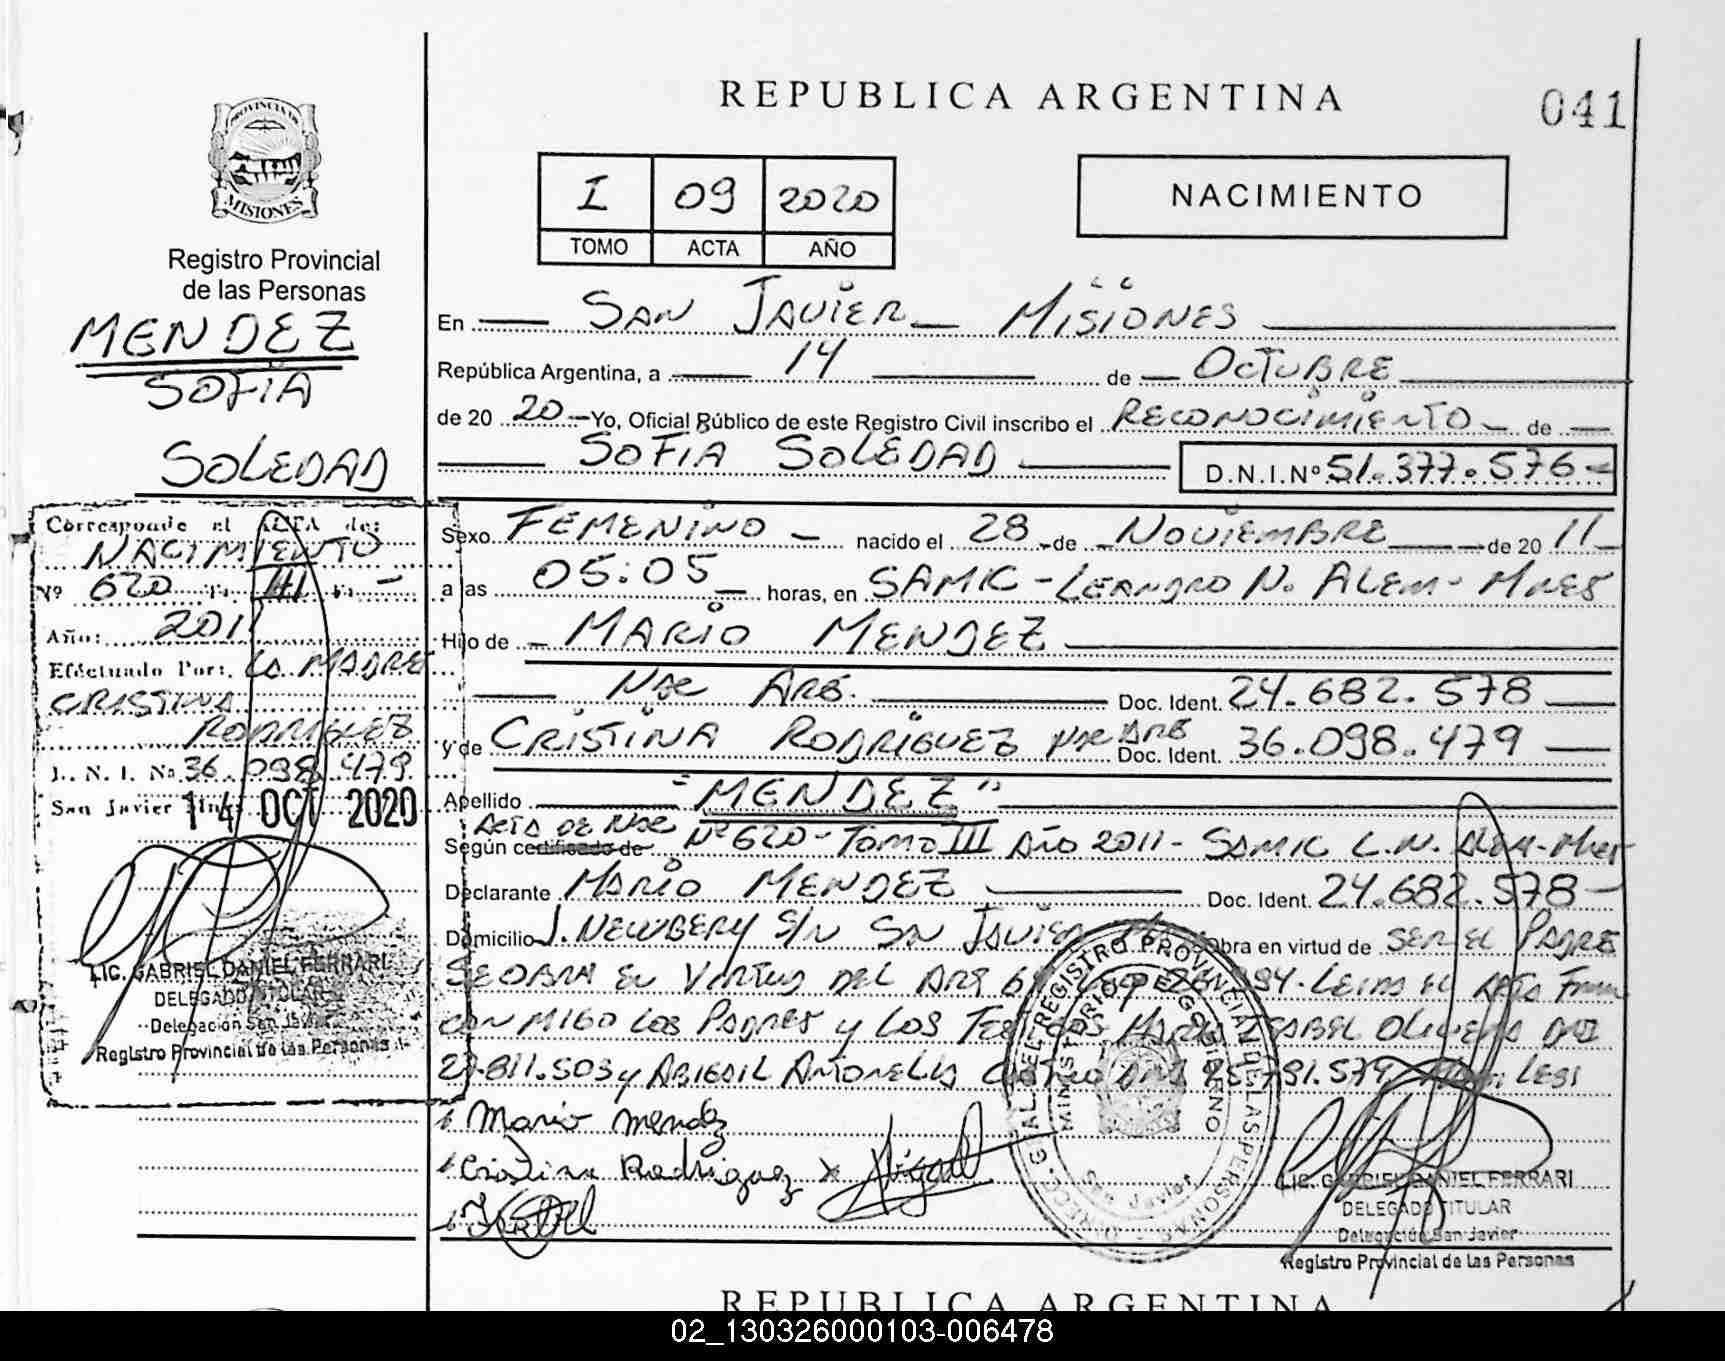 REPUBLICA ARGENTINA
041
PROVINCIA DE
MISIONES
Registro Provincial
de las Personas
MENDEZ
SOFIA
SOLEDAD
I 09 2020
TOMO ACTA AÑO
NACIMIENTO
En SAN JAVIER MISIONES
República Argentina, a 14 de OCTUBRE
de 20 20 Yo, Oficial Público de este Registro Civil inscribo el RECONOCIMIENTO de
SOFIA SOLEDAD D.N.I.Nº 51.377.576
Sexo FEMENINO nacido el 28 de NOVIEMBRE de 20 11
a las 05:05 horas, en SAMIC - LEANDRO N. ALEM - MNES
Hijo de MARIO MENDEZ
NAC ARG. Doc. Ident. 24.682.578
y de CRISTINA RODRIGUEZ NAC ARG Doc. Ident. 36.098.479
Apellido "MENDEZ"
ACTA DE NAC
Según certificado de Nº 620 - TOMO III AÑO 2011 - SAMIC L.N. ALEM - Mnes
Declarante MARIO MENDEZ Doc. Ident. 24.682.578
Domicilio J. NEWBERY S/N SAN JAVIER obra en virtud de SER EL PADRE
SE OBRA EN VIRTUD DEL ART LEIDA EL ACTA
CON MIGO LOS PADRES y LOS OLIVERA DNI
ABIGAIL ANTONELLA
Mario Mendez
Cristina Rodriguez x Abigail
Corresponde al ACTA de:
NACIMIENTO
Nº 620 Tº III Fº -
Año: 2011
Efectuado Por: LA MADRE
CRISTINA
RODRIGUEZ
D. N. I. Nº 36.098.479
San Javier Mnes 14 OCT 2020
LIC. GABRIEL DANIEL FERRARI
DELEGADO TITULAR
Delegación San Javier
Registro Provincial de las Personas
DIRECC. GRAL. DEL REGISTRO PROVINCIAL DE LAS PERSONAS
MINISTERIO DE GOBIERNO
San Javier
LIC. GABRIEL DANIEL FERRARI
DELEGADO TITULAR
Delegación San Javier
Registro Provincial de las Personas
REPUBLICA ARGENTINA
02_130326000103-006478